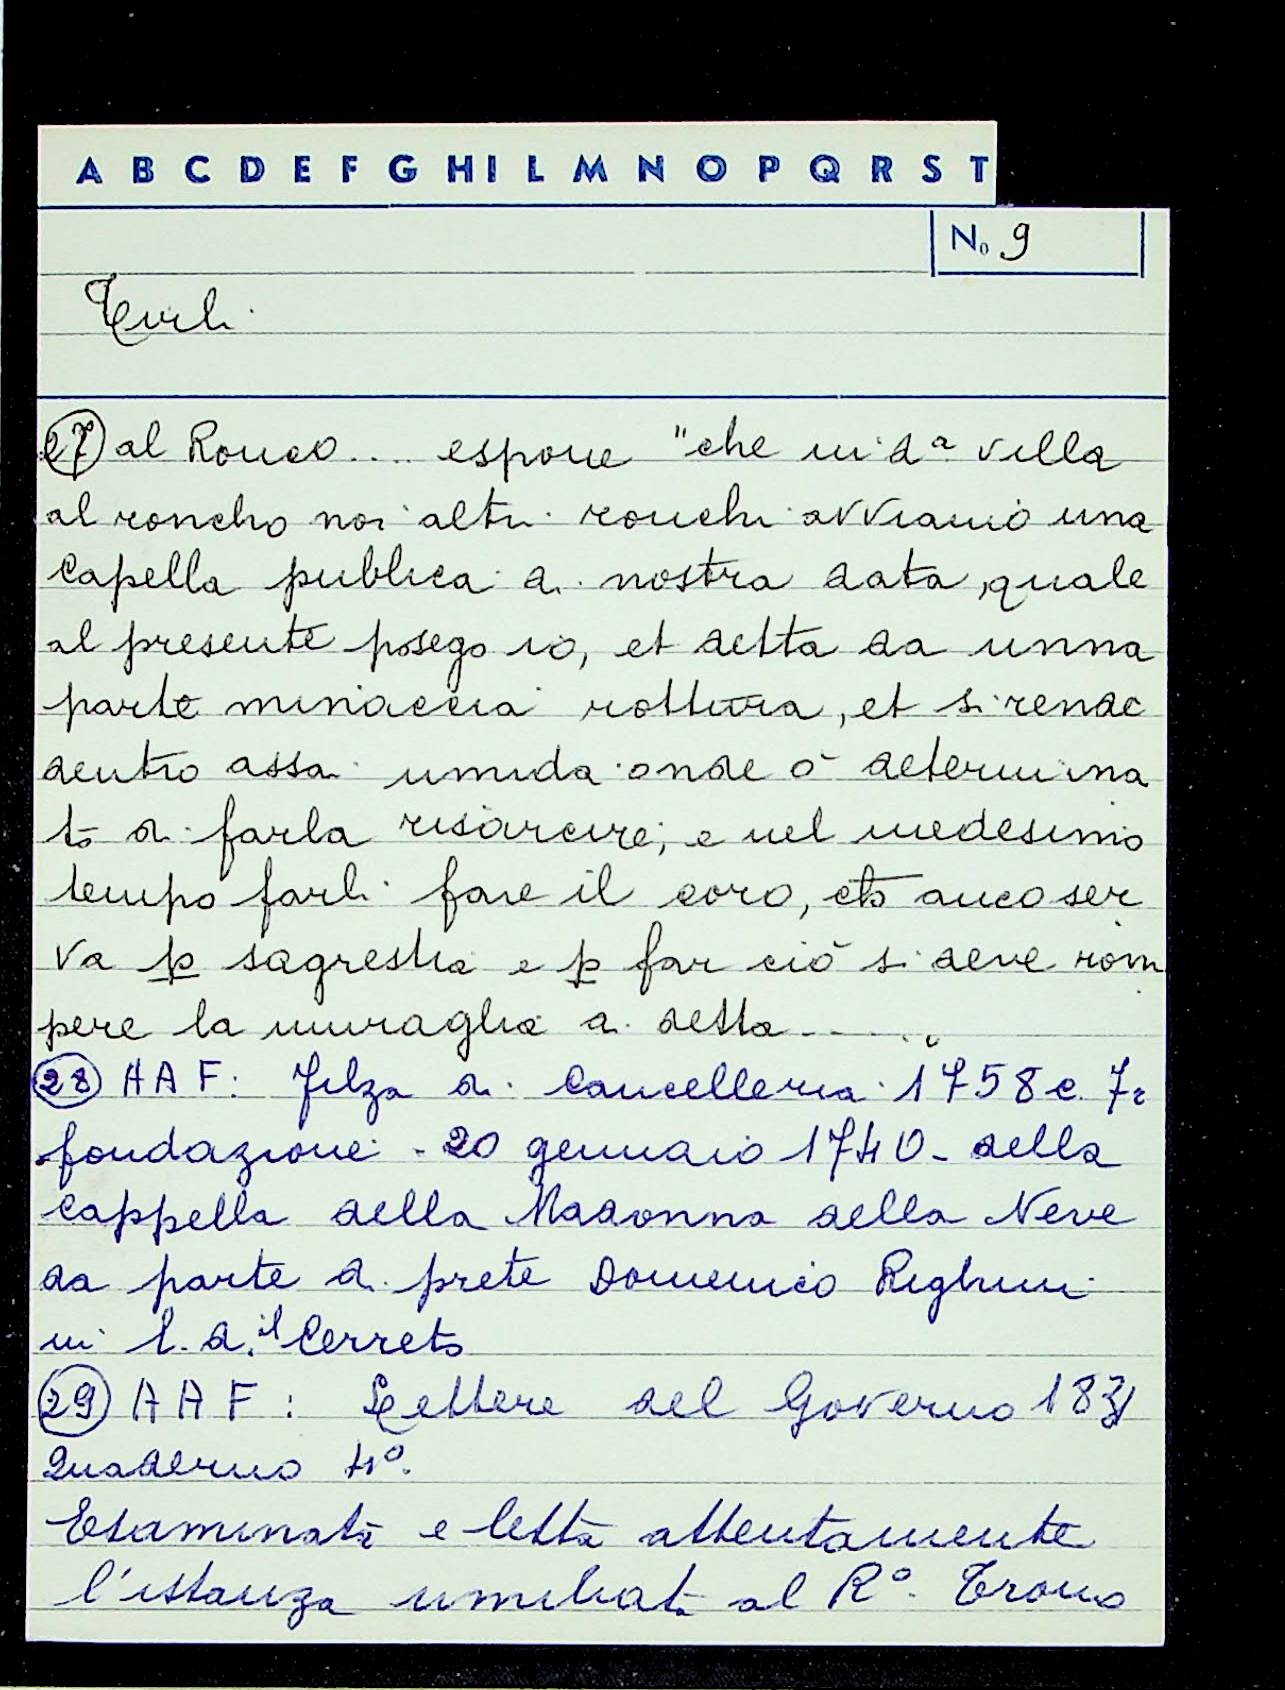 A B C D E F G H I L M N O P Q R S T
No 9
Tirli
27 al Ronco.... espone "che in da villa
al roncho noi altri ronchi avviamo una
capella publica di nostra data, quale
al presente posego io, et detta da unna
parte minaccia rottura, et si rende
dentro assai umida onde ò determina
to di farla risarcire, e nel medesimo
tempo farli fare il coro, che anco ser
va p sagrestia e p far ciò si deve rom
pere la muraglia di detta......
28 AAF: Filza di Cancelleria 1758 c. 7r
fondazione - 20 gennaio 1740 - della
cappella della Madonna della Neve
da parte di prete Domenico Righini
in l. d. il Cerreto
29 AAF: Lettere del Governo 1831
Quaderno 4°.
Esaminata e letta attentamente
l'istanza umiliata al R°. Trono